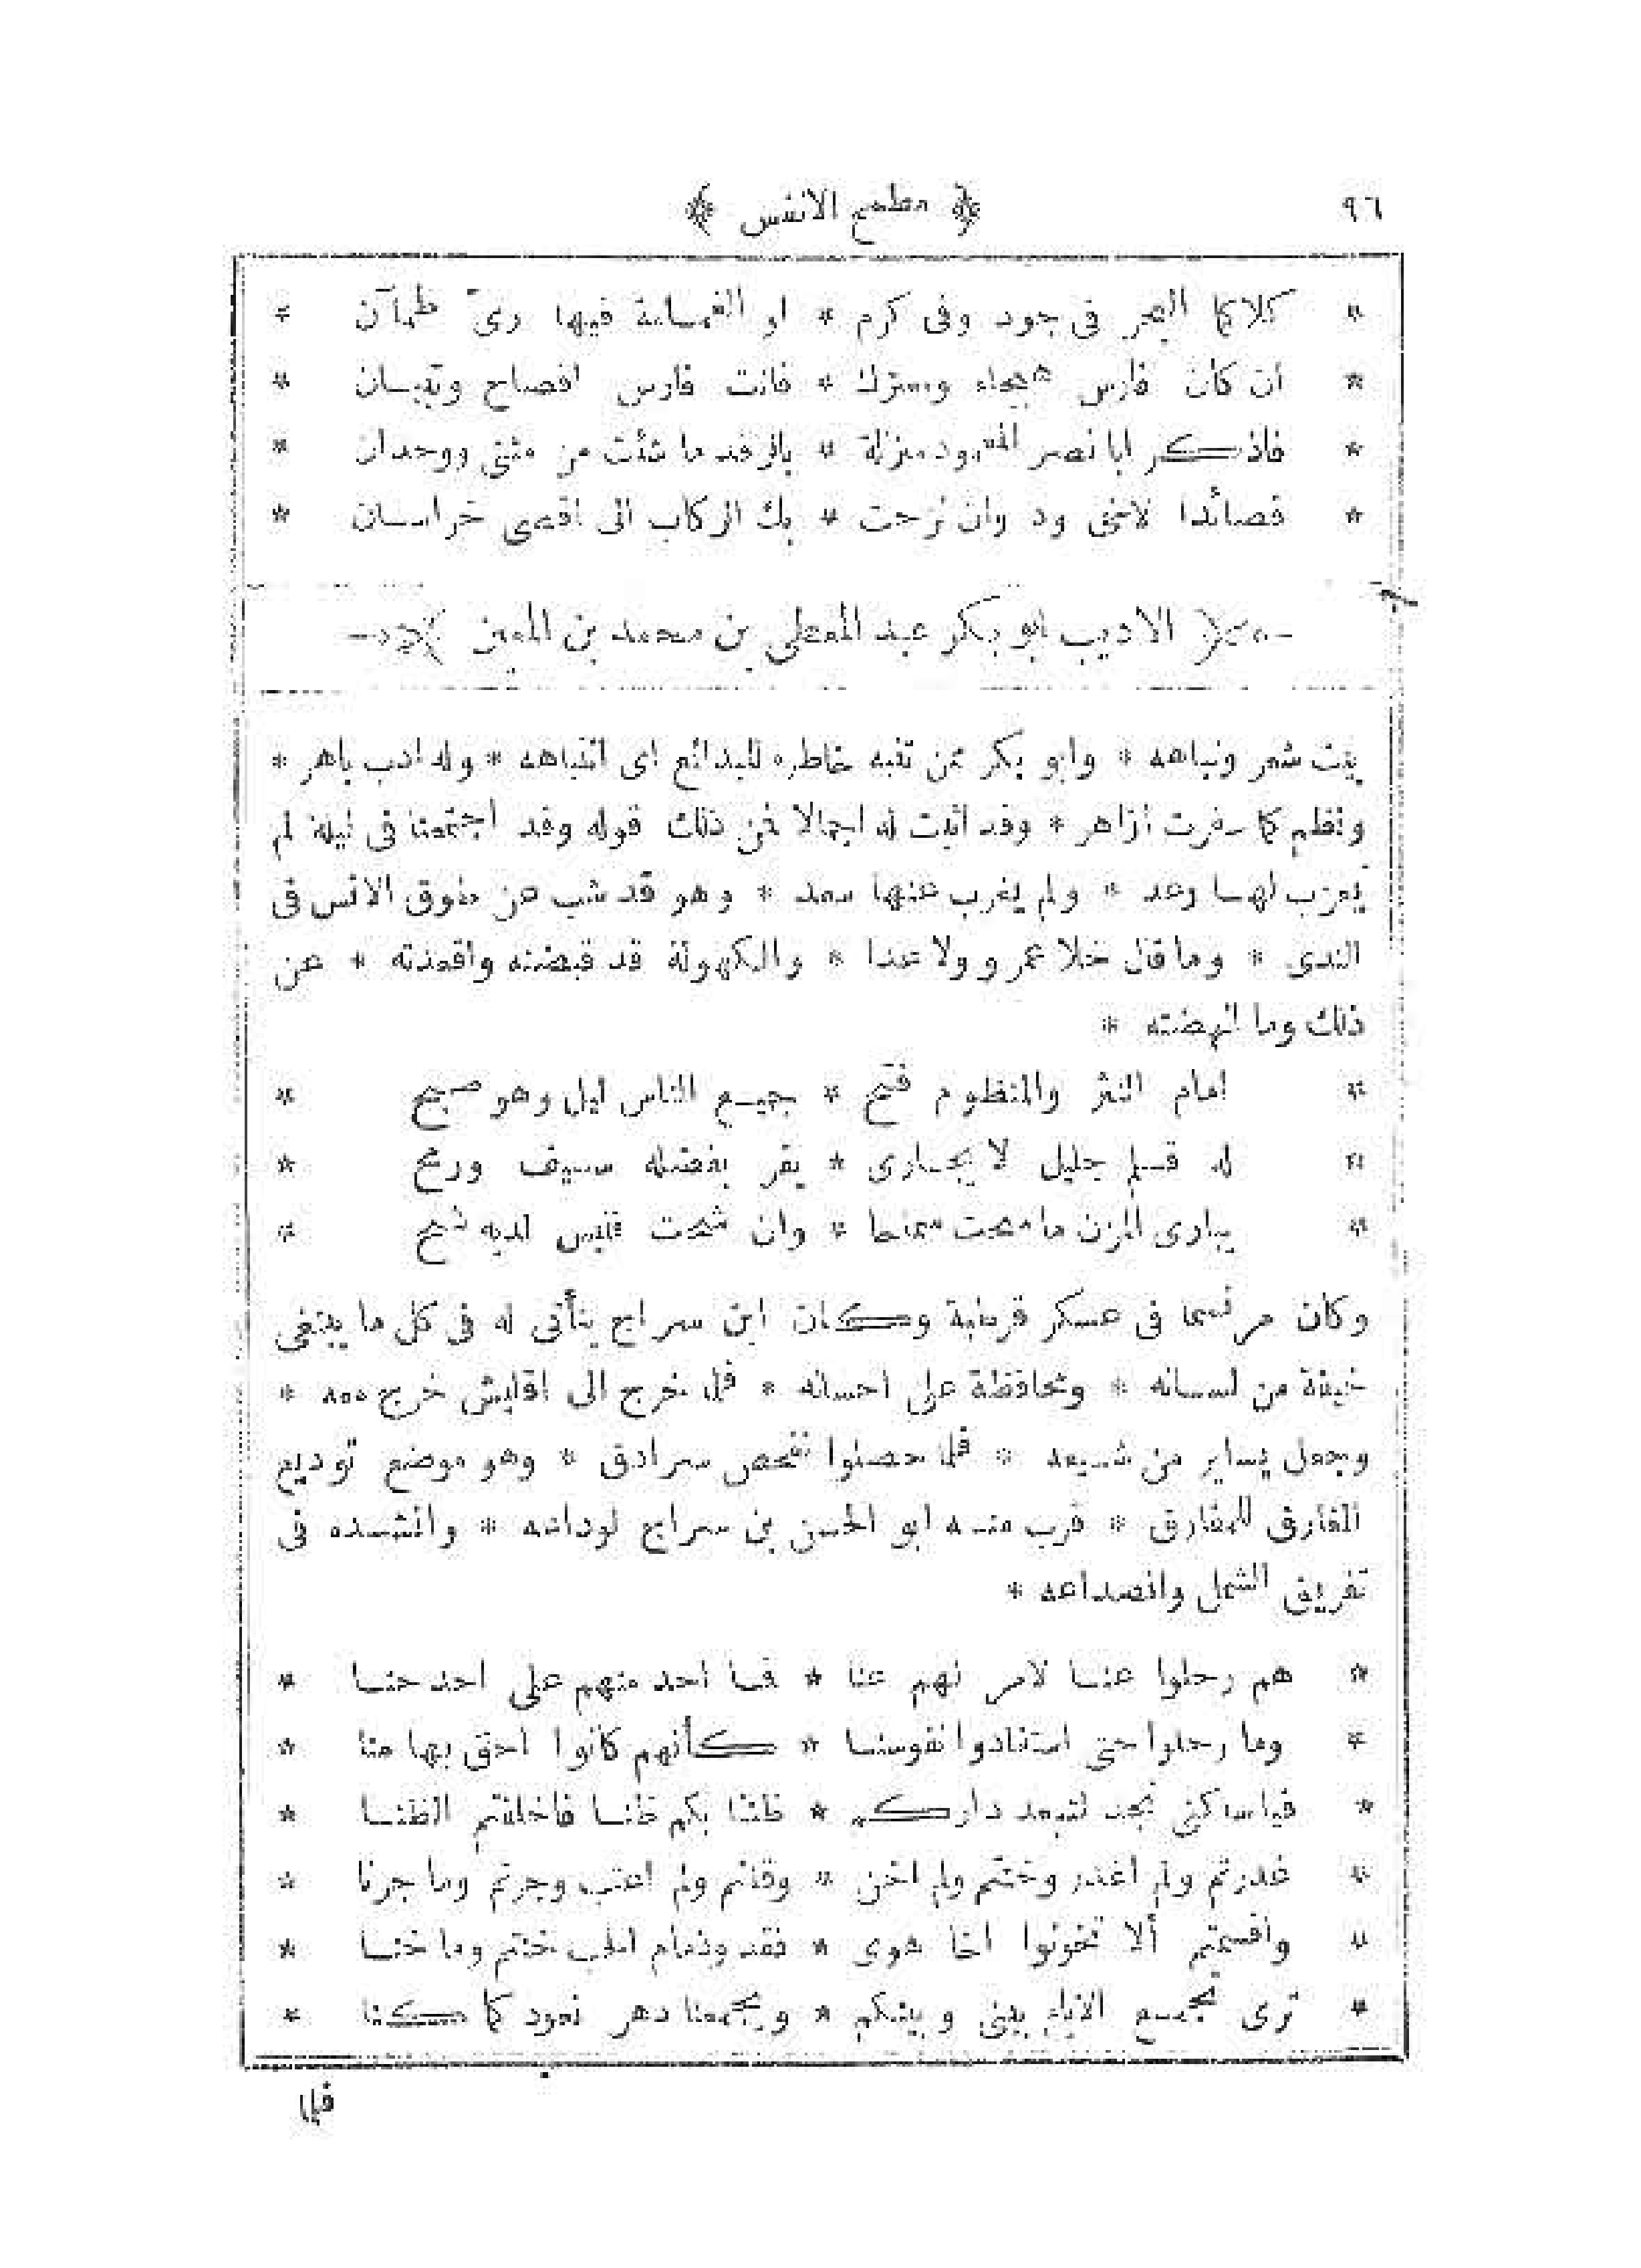 ٩٦ ﴿ مطمح الانفس ﴾
* كلاكما البحر فى جود وفى كرم * او الغمامة فيها رىّ ظمآن *
* ان كان فارس هيجاء ومعترك * فانت فارس افصاح وتبيان *
* فاذكر ابا نصر المعمود منزلة * بالرفد ما شئت من مثنى ووحدان *
* قصائدا لاخى ود وان نزحت * بك الركاب الى اقصى خراسان *
﴿ الاديب ابو بكر عبد المعطى بن محمد بن المعين ﴾
بيت شعر ونباهه * وابو بكر ممن تنبه خاطره للبدائع اى انتباهه * وله ادب باهر *
ونظم كما سفرت ازاهر * وقد اثبت له اجمالا فمن ذلك قوله وقد اجتمعنا فى ليلة لم
يعزب لها وعد * ولم يغرب عنها سعد * وهو قد شب عن طوق الانس فى
الندى * وما قال خلا عمرو ولا عدا * والكهولة قد قبضته واقعدته * عن
ذلك وما انهضته *
* امام النثر والمنظوم فتح * جميع الناس ليل وهو صبح *
* له قلم جليل لا يجارى * يقر بفضله سيف ورمح *
* يبارى المزن ما سحت سماحا * وان شحت فليس لديه شح *
وكان مرتسما فى عسكر قرطبة وكان ابن سراج يتأتى له فى كل ما يبتغى
خيفة من لسانه * ومحافظة على احسانه * فلما خرج الى اقليش خرج معه *
وجعل يساير من شيعه * فلما حصلوا بفحص سرادق * وهو موضع توديع
المفارق للمفارق * قرب منه ابو الحسن بن سراج لوداعه * وانشده فى
تفريق الشمل وانصداعه *
* هم رحلوا عنا لامر لهم عنا * فما احد منهم على احد حنا *
* وما رحلوا حتى استفادوا نفوسنا * كأنهم كانوا احق بها منا *
* فيا ساكنى نجد لتبعد داركم * ظننا بكم ظنا فاخلفتم الظنا *
* غدرتم ولم اغدر وخنتم ولم اخن * وقلتم ولم اعتب وجرتم وما جرنا *
* واقسمتم ألا تخونوا اخا هوى * فقد وذمام الحب خنتم وما خنا *
* ترى تجمع الايام بينى وبينكم * ويجمعنا دهر نعود كما كنا *
فلما